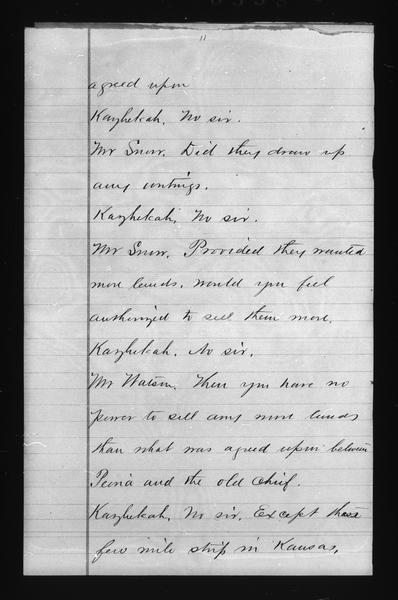 11
agreed upon
Kayhekah. No sir.
Mr Snow. Did they draw up
any writings.
Kayhekah. No sir.
Mr Snow. Provided they wanted
more lands, would you feel
authorized to sell them more.
Kayhekah. No sir.
Mr Watson. Then you have no
power to sell any more lands
than what was agreed upon between
and the old chief.
Kayhekah. No sir. Except those
few mile strip in Kansas,